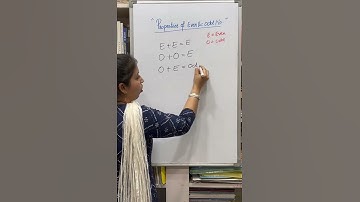 "Properties of Even & odd No
E = Even
O = odd
E + E = E
O + O = E
O + E = odd